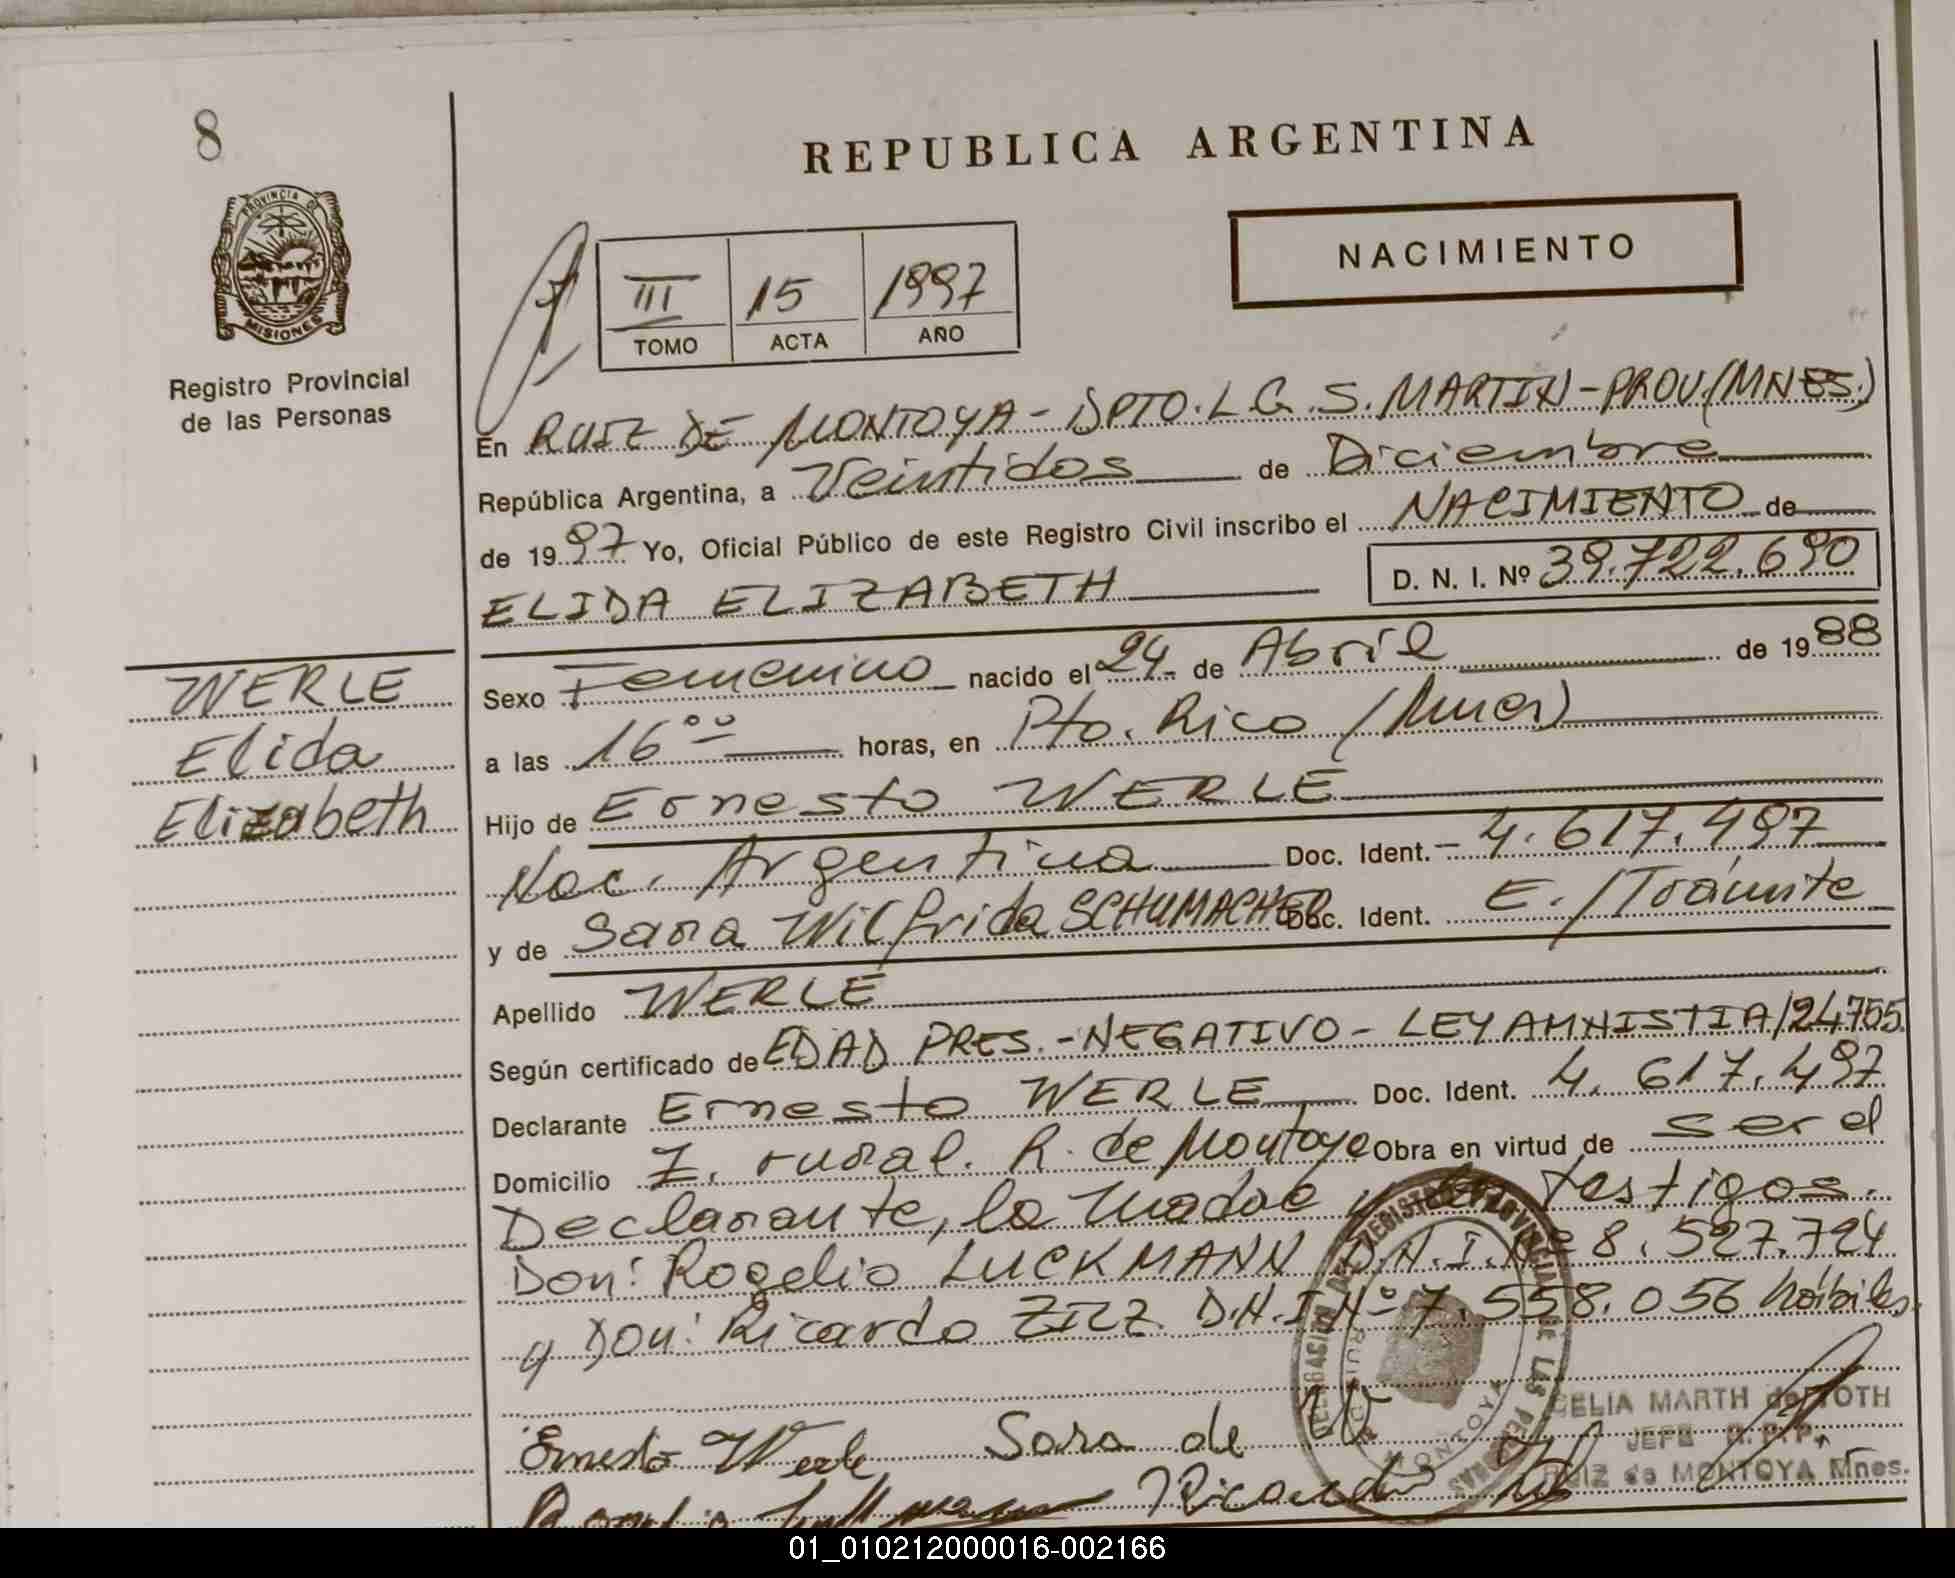 8
REPUBLICA ARGENTINA
PROVINCIA DE
MISIONES
Registro Provincial
de las Personas
NACIMIENTO
III 15 1997
TOMO ACTA AÑO
En RUIZ DE MONTOYA - DPTO. L.G.S. MARTIN - PROV. (MNES.)
República Argentina, a Veintidos de Diciembre
de 1997 Yo, Oficial Público de este Registro Civil inscribo el NACIMIENTO de
ELIDA ELIZABETH D. N. I. Nº 39.722.690
WERLE
Elida
Elizabeth
Sexo Femenino nacido el 24 de Abril de 1988
a las 16 00 horas, en Pto. Rico (Mnes)
Hijo de Ernesto WERLE
Nac. Argentina Doc. Ident. - 4.617.497
y de Sara Wilfrida SCHUMACHER Doc. Ident. E./Trámite
Apellido WERLE
Según certificado de EDAD PRES. - NEGATIVO - LEY AMNISTIA/24755
Declarante Ernesto WERLE Doc. Ident. 4.617.497
Domicilio Z. rural. R. de Montoya Obra en virtud de ser el
Declarante, la madre y testigos.
Don: Rogelio LUCKMANN D.N.I. Nº 8.527.724
y Don: Ricardo ZILZ D.N.I Nº 7.558.056 hábiles
Ernesto Werle Sara de W
Ricardo
DELEGACION DE REGISTRO PROVINCIAL DE LAS PERSONAS
RUIZ DE MONTOYA
CELIA MARTH de TOTH
JEFE R.P.P.
RUIZ de MONTOYA Mnes.
01_010212000016-002166